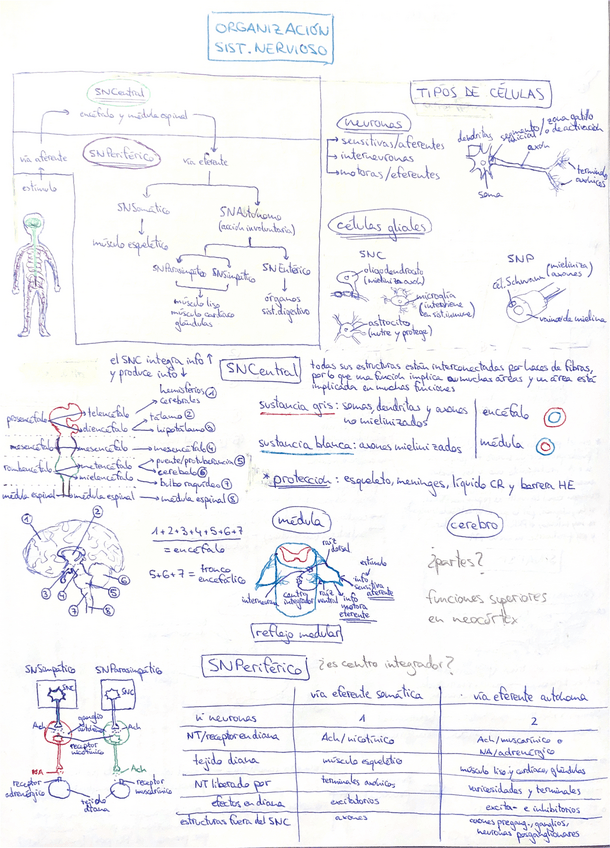 ORGANIZACIÓN
SIST. NERVIOSO
SNCentral
encéfalo y médula espinal
SNPeriférico
vía aferente
vía eferente
estímulo
SNSomático
SNAutónomo
(acción involuntaria)
músculo esquelético
SNParasimpático
SNSimpático
SNEntérico
músculo liso
músculo cardíaco
glándulas
órganos
sist. digestivo
TIPOS DE CÉLULAS
neuronas
sensitivas/aferentes
interneuronas
motoras/eferentes
dendritas
segmento/
inicial
zona gatillo
o de activación
axón
terminales
axónicos
soma
células gliales
SNC
oligodendrocito
(mieliniza axón)
microglía
(interviene
en sist. inmune)
astrocito
(nutre y protege)
SNP
cél. Schwann
(mieliniza
axones)
vaina de mielina
el SNC integra info ↑
y produce info ↓
SNCentral
todas sus estructuras están interconectadas por haces de fibras,
por lo que una función implica muchas áreas y un área está
implicada en muchas funciones
prosencéfalo
telencéfalo
hemisferios ①
cerebrales
diencéfalo
tálamo ②
hipotálamo ③
mesencéfalo
mesencéfalo
mesencéfalo ④
rombencéfalo
metencéfalo
puente/protuberancia ⑤
cerebelo ⑥
mielencéfalo
bulbo raquídeo ⑦
médula espinal
médula espinal
médula espinal ⑧
sustancia gris: somas, dendritas y axones
no mielinizados
sustancia blanca: axones mielinizados
encéfalo
médula
* protección: esqueleto, meninges, líquido CR y barrera HE
① ② ③ ④ ⑤ ⑥ ⑦ ⑧
1+2+3+4+5+6+7
= encéfalo
5+6+7 = tronco
encefálico
médula
raíz
dorsal
estímulo
info
sensitiva
aferente
interneurona
centro
integrador
raíz
ventral
info
motora
eferente
reflejo medular
cerebro
¿partes?
funciones superiores
en neocórtex
SNPeriférico
¿es centro integrador?
SNSimpático
SNParasimpático
SNC
SNC
Ach
ganglio
autónomo
Ach
receptor
nicotínico
NA
Ach
receptor
adrenérgico
receptor
muscarínico
tejido
diana
vía eferente somática
vía eferente autónoma
nº neuronas
1
2
NT/receptor en diana
Ach/nicotínico
Ach/muscarínico o
NA/adrenérgico
tejido diana
músculo esquelético
músculo liso y cardíaco, glándulas
NT liberado por
terminales axónicos
varicosidades y terminales
efectos en diana
excitatorios
excita- e inhibitorios
estructuras fuera del SNC
axones
axones pregang., ganglios,
neuronas posganglionares